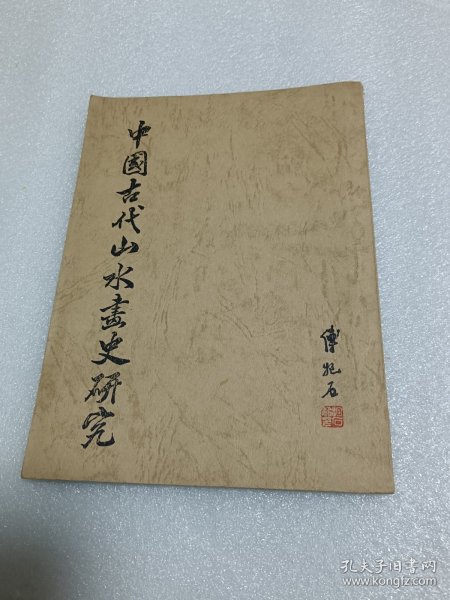 中國古代山水畫史研究
傅抱石
孔夫子旧书网
www.kongfz.com